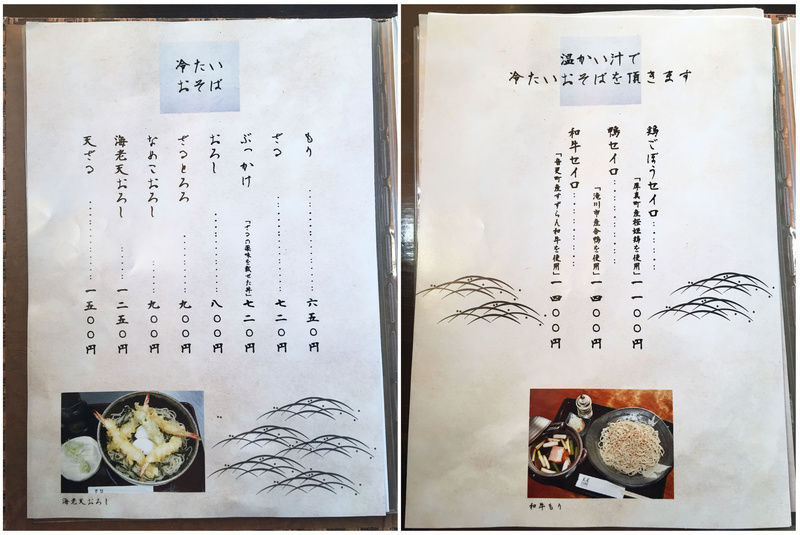 冷たい
おそば
もり ………………… 六五〇円
ざる ………………… 七二〇円
ぶっかけ 「ざるの薬味を載せた丼」 七二〇円
おろし ………………… 八〇〇円
ざるとろろ ………… 九〇〇円
なめこおろし ……… 九〇〇円
海老天おろし …… 一二五〇円
天ざる ………………… 一五〇〇円
海老天おろし
温かい汁で
冷たいおそばを頂きます
鶏ごぼうセイロ………
「厚真町産桜姫鶏を使用」 一一〇〇円
鴨セイロ………………
「滝川市産合鴨を使用」 一四〇〇円
和牛セイロ……………
「音更町産すずらん和牛を使用」 一四〇〇円
和牛もり